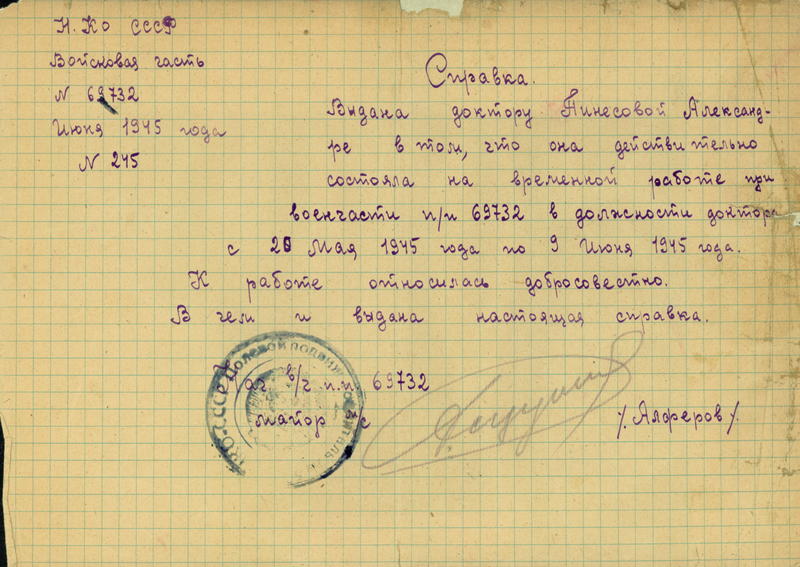 Н. Ко СССР
Войсковая часть
N 69732
Июня 1945 года
N 245
Справка.
Выдана доктору Пинесовой Александ-
ре в том, что она действительно
состояла на временной работе при
военчасти п/п 69732 в должности доктора
с 20 Мая 1945 года по 9 Июня 1945 года.
К работе относилась добросовестно.
В чем и выдана настоящая справка.
Нач в/ч п.п. 69732
майор м/с
/. Алферов /.
НКО-СССР Полевой подвижной госпиталь